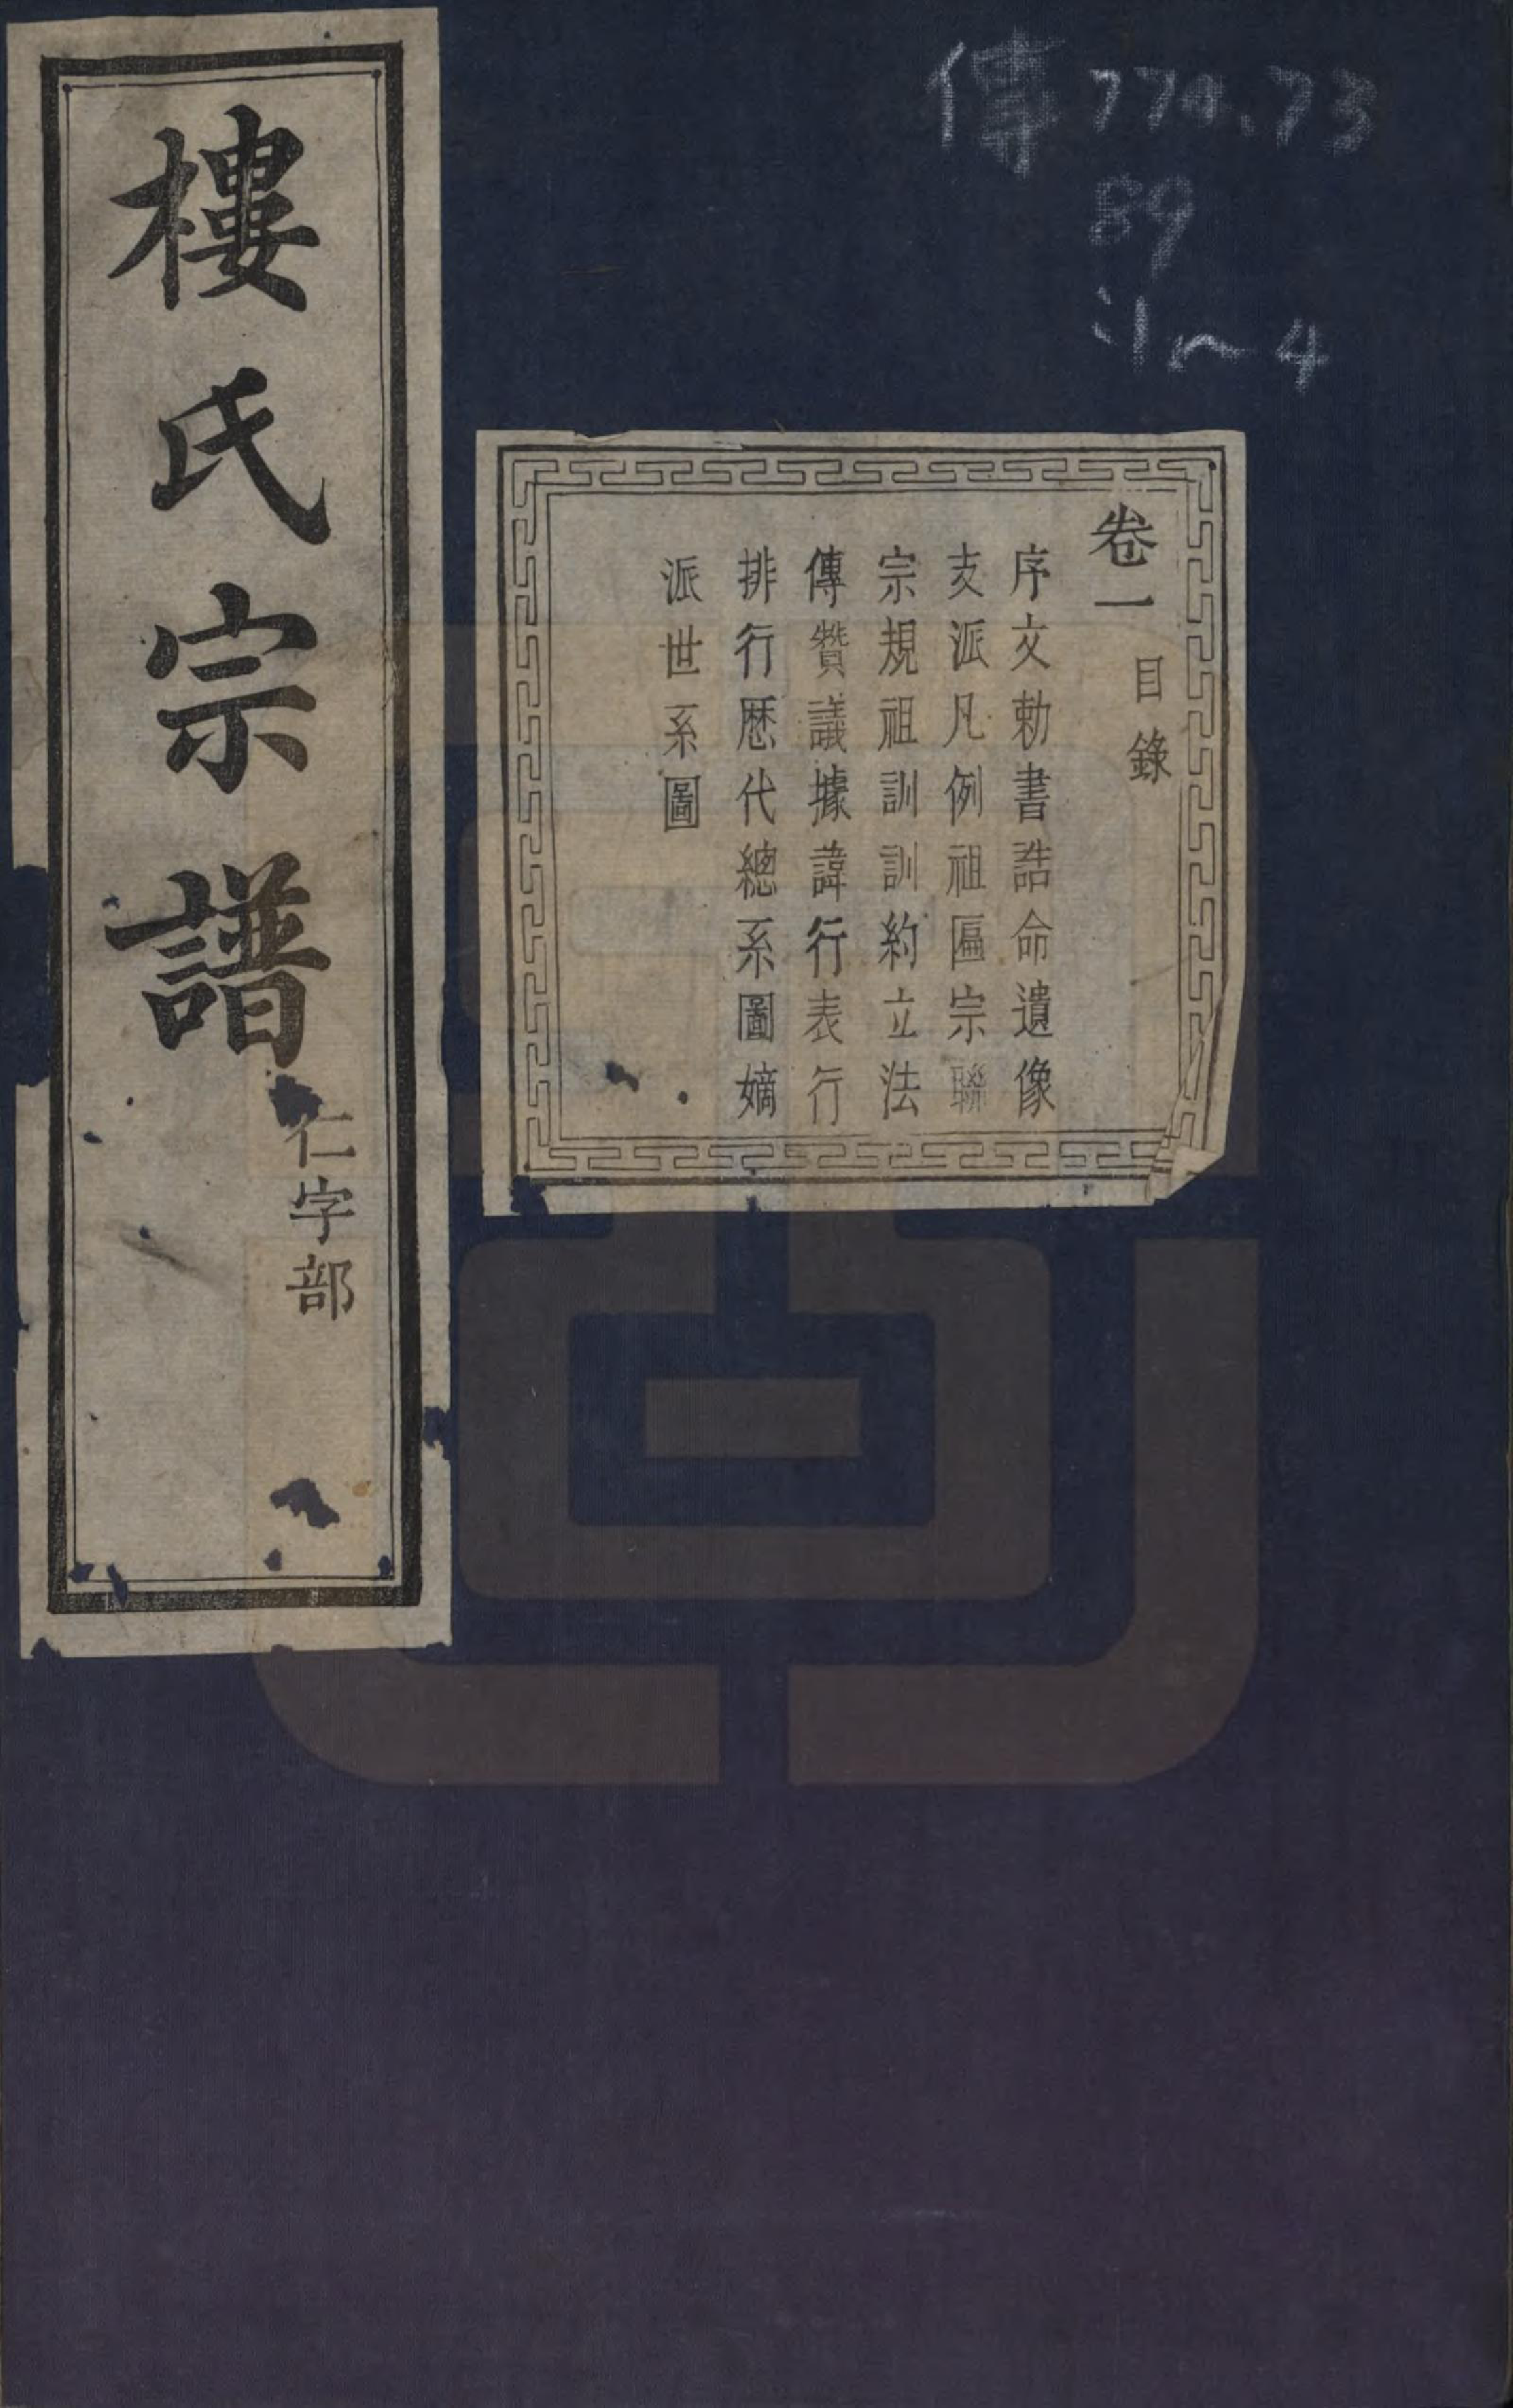 傳 770.73
89
:1~4
卷一
目錄
序文勅書誥命遺像
支派凡例祖匾宗聯
宗規祖訓訓約立法
傳贊議據諱行表行
排行歷代總系圖嫡
派世系圖
樓氏宗譜
仁字部